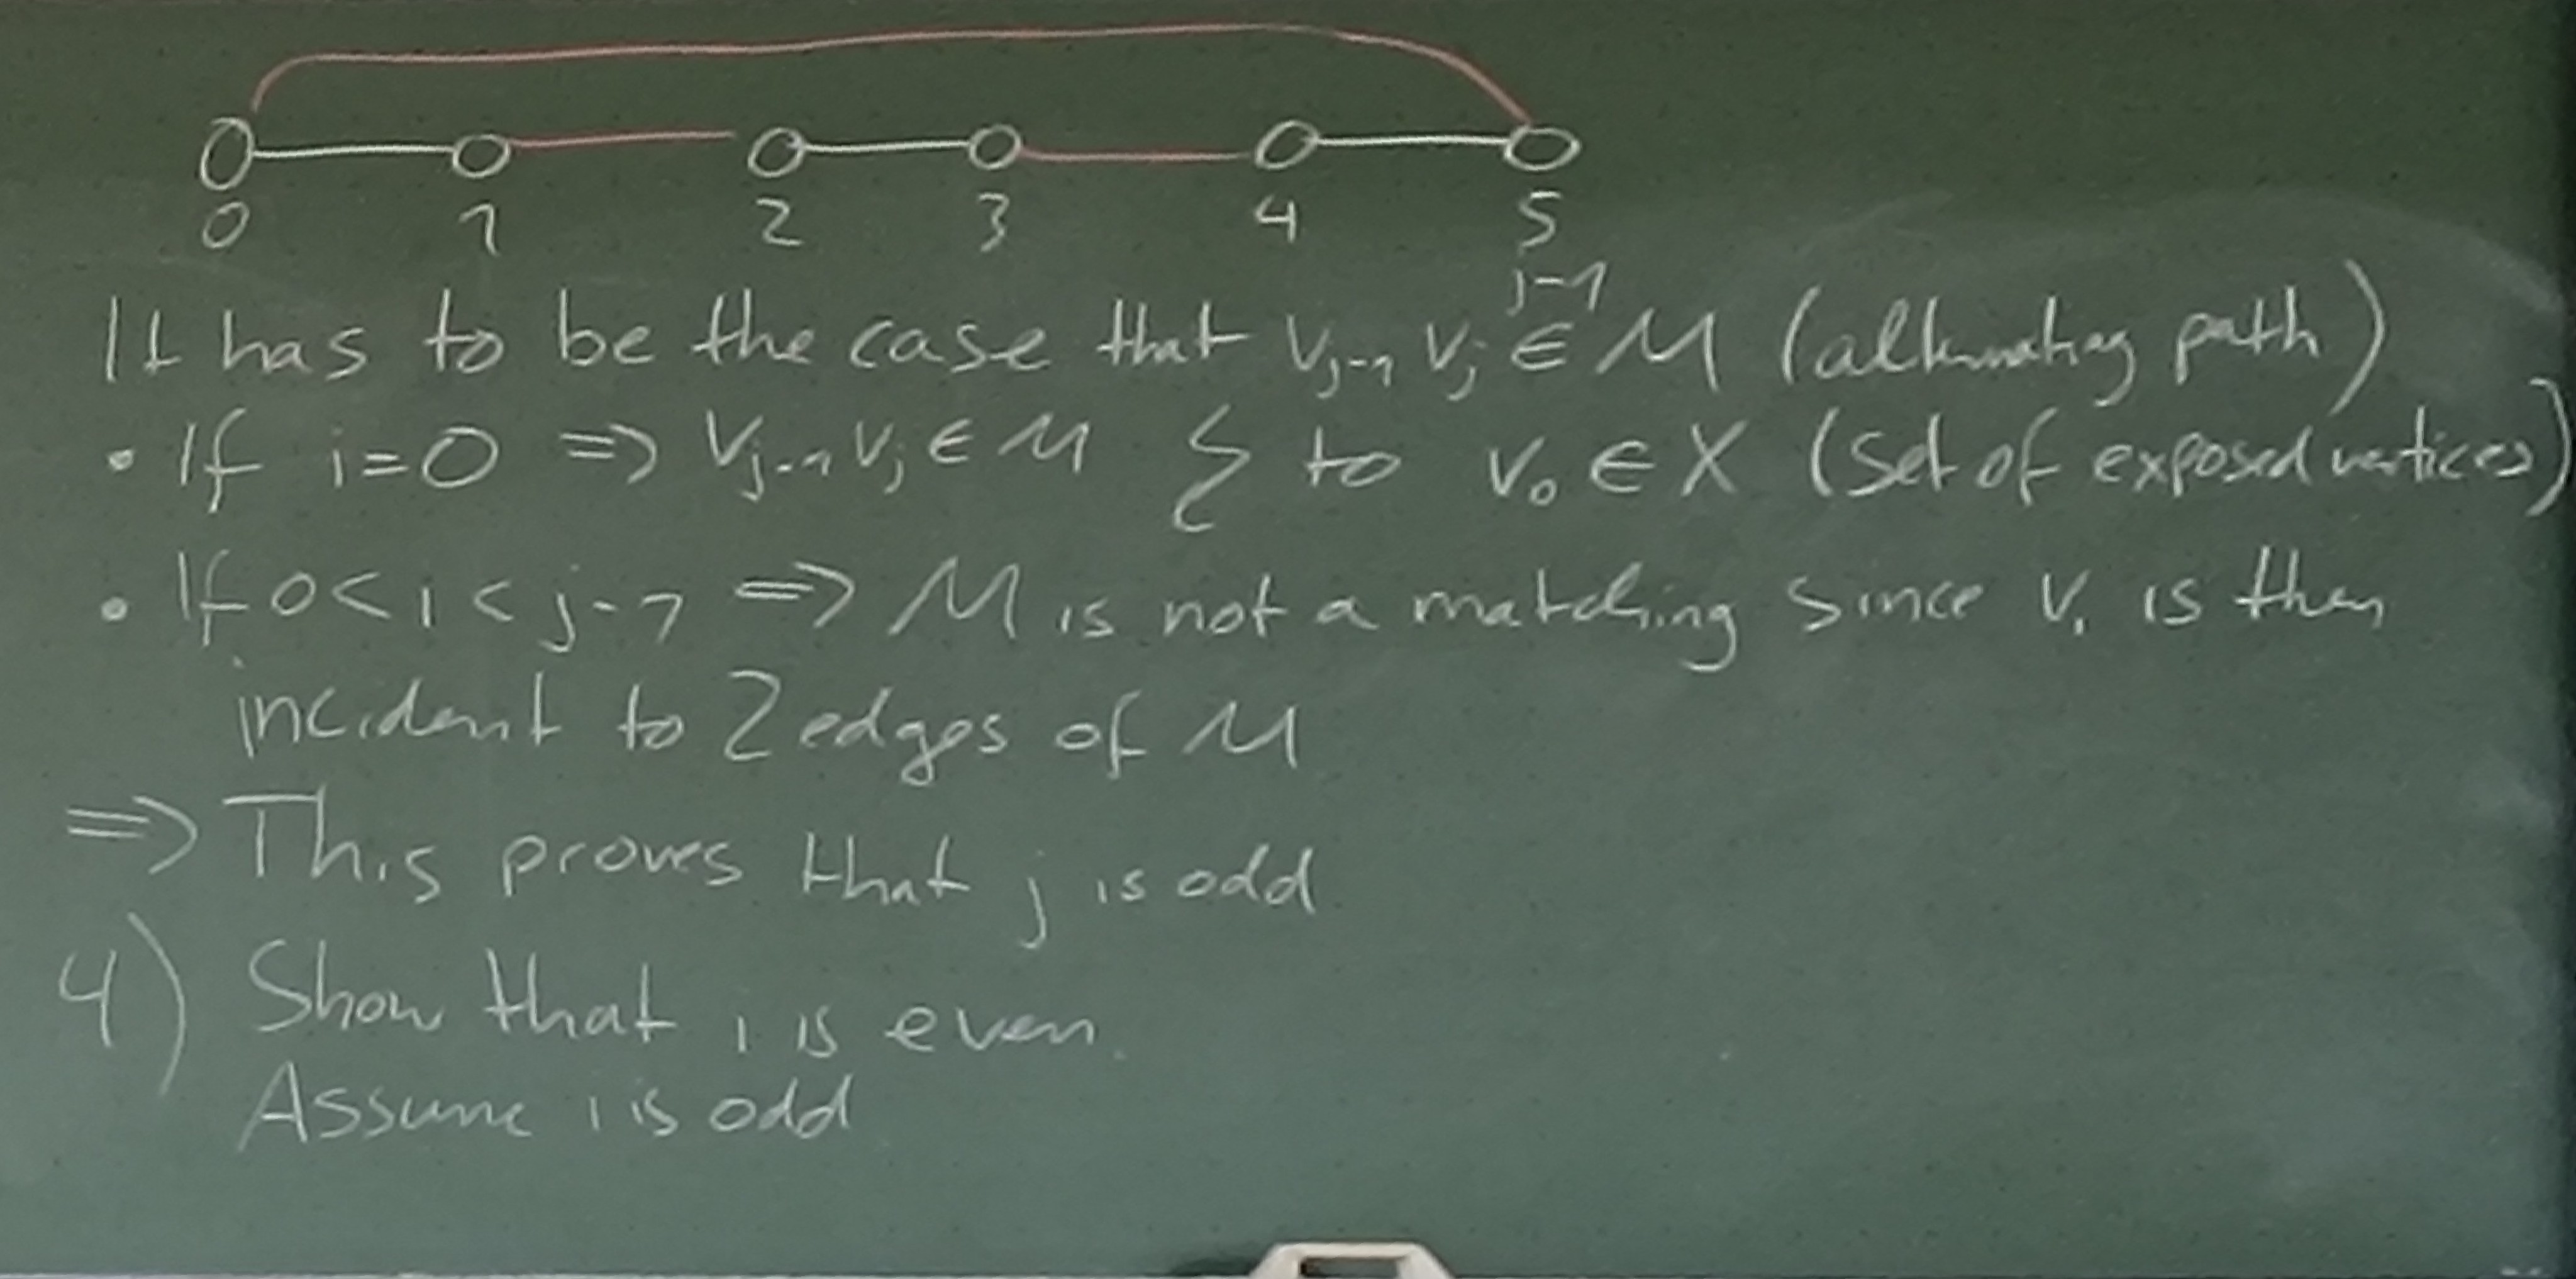 0 1 2 3 4 5
j-1
It has to be the case that v_{j-1} v_j ∈ M (alternating path)
• If i=0 ⇒ v_{j-1} v_j ∈ M ↯ to v_0 ∈ X (set of exposed vertices)
• If 0<i<j-1 ⇒ M is not a matching since v_i is then
incident to 2 edges of M
⇒ This proves that j is odd
4) Show that i is even.
Assume i is odd